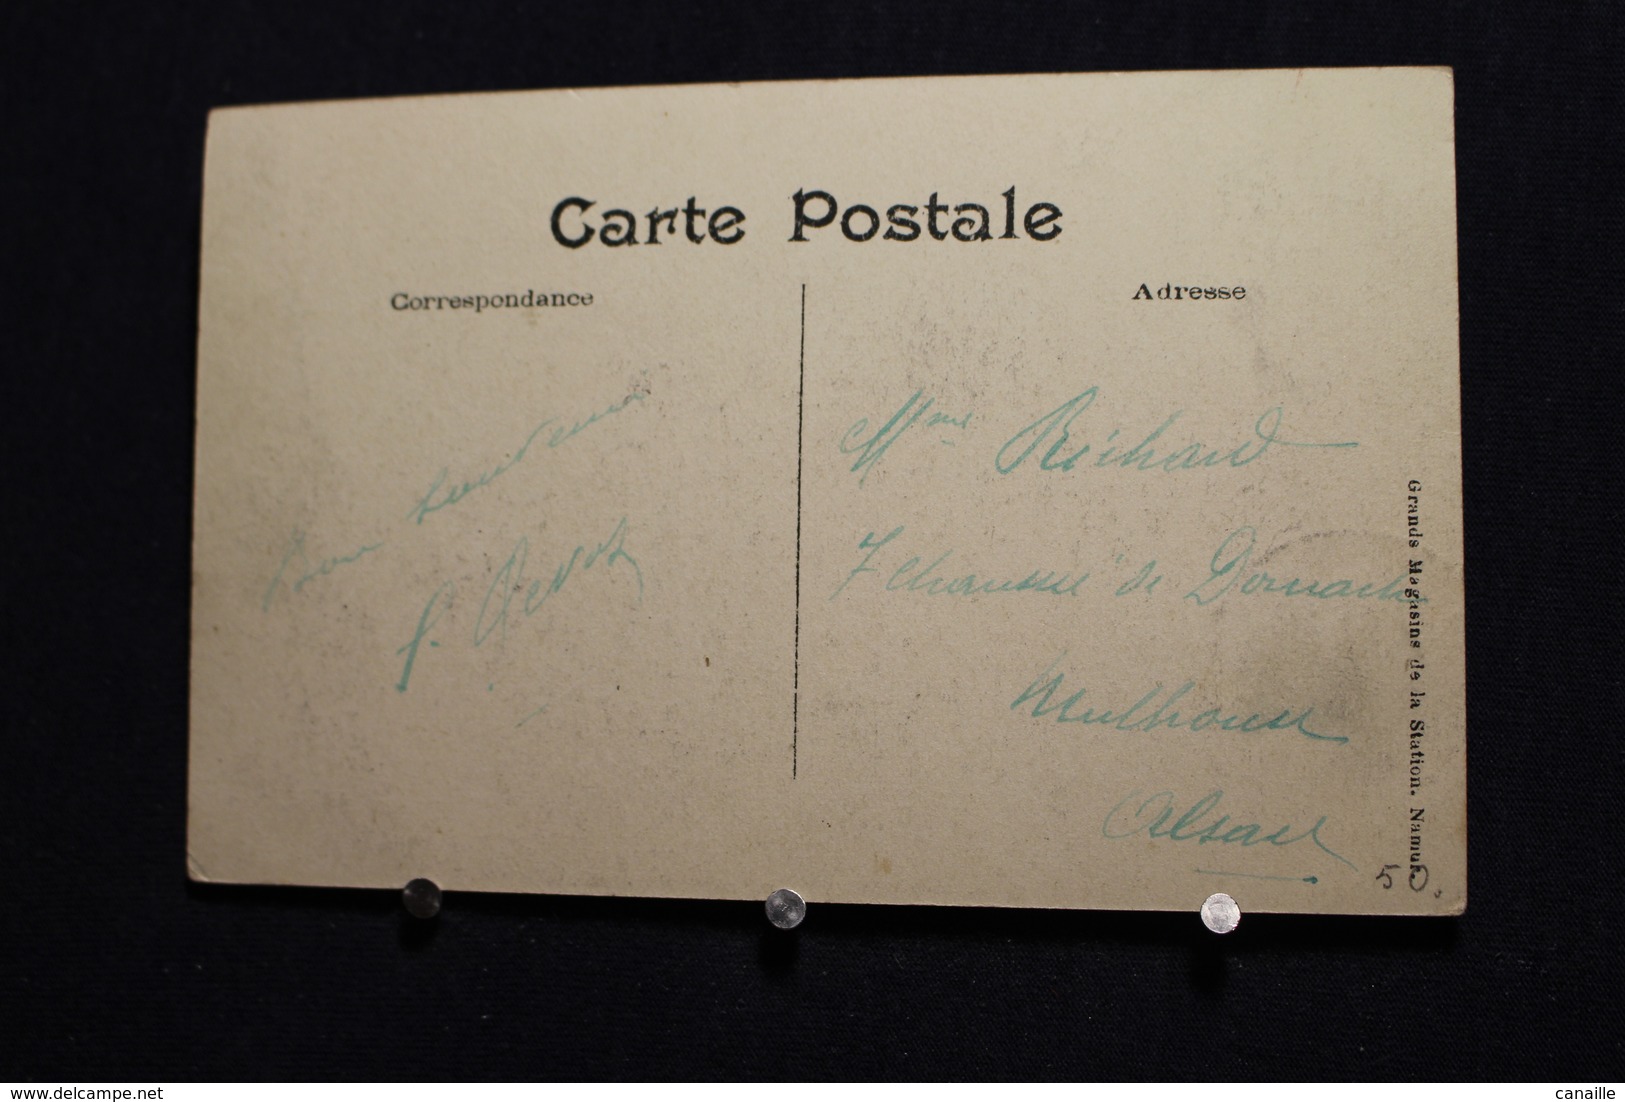 Carte Postale
Correspondance
Adresse
Bon souvenir
Mme Richard
7 chaussée de Dornach
Mulhouse
Alsace
Grands Magasins de la Station. Namur.
50
delcampe.net
canaille